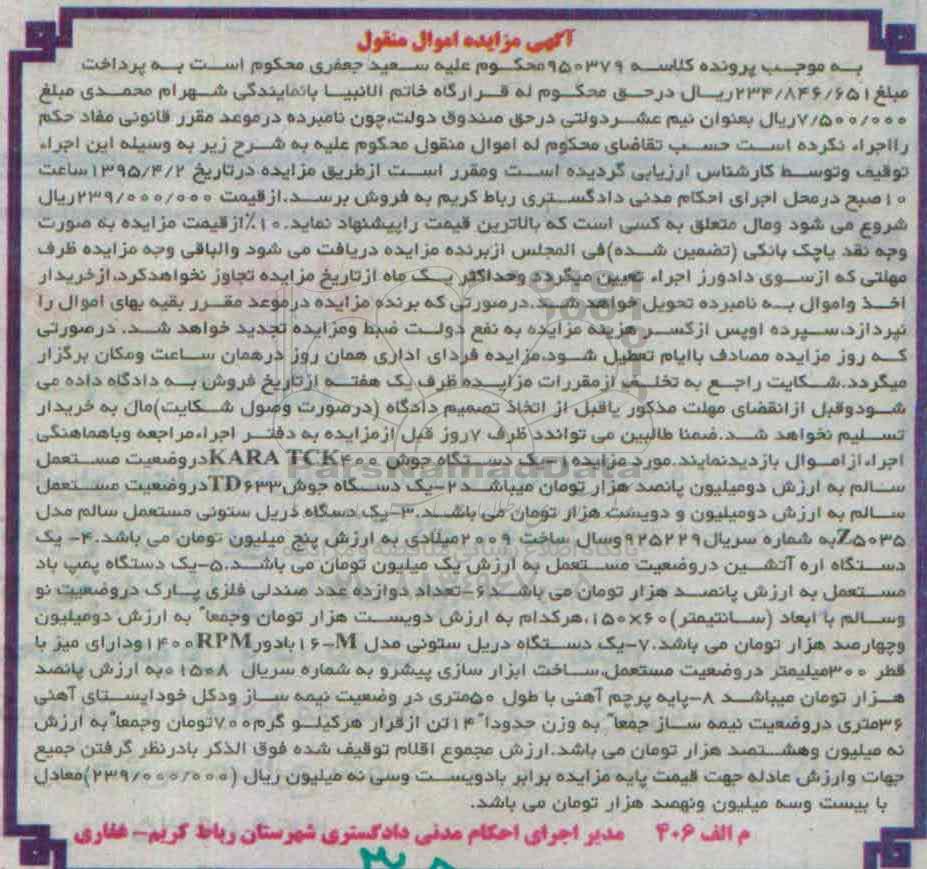 آگهی مزایده اموال منقول
به موجب پرونده کلاسه ۹۵۰۳۷۹محکوم علیه سعید جعفری محکوم است به پرداخت
مبلغ۲۳۴/۸۴۶/۶۵۱ریال درحق محکوم له قرارگاه خاتم الانبیا بانمایندگی شهرام محمدی مبلغ
۷/۵۰۰/۰۰۰ریال بعنوان نیم عشردولتی درحق صندوق دولت،چون نامبرده درموعد مقرر قانونی مفاد حکم
رااجراء نکرده است حسب تقاضای محکوم له اموال منقول محکوم علیه به شرح زیر به وسیله این اجراء
توقیف وتوسط کارشناس ارزیابی گردیده است ومقرر است ازطریق مزایده درتاریخ ۱۳۹۵/۴/۲ساعت
۱۰صبح درمحل اجرای احکام مدنی دادگستری رباط کریم به فروش برسد.ازقیمت ۲۳۹/۰۰۰/۰۰۰ریال
شروع می شود ومال متعلق به کسی است که بالاترین قیمت راپیشنهاد نماید.۱۰٪ازقیمت مزایده به صورت
وجه نقد یاچک بانکی (تضمین شده)فی المجلس ازبرنده مزایده دریافت می شود والباقی وجه مزایده ظرف
مهلتی که ازسوی دادورز اجراء تعیین میگردد وحداکثر یک ماه ازتاریخ مزایده تجاوز نخواهدکرد،ازخریدار
اخذ واموال به نامبرده تحویل خواهد شد.درصورتی که برنده مزایده درموعد مقرر بقیه بهای اموال را
نپردازد،سپرده اوپس ازکسر هزینه مزایده به نفع دولت ضبط ومزایده تجدید خواهد شد. درصورتی
که روز مزایده مصادف باایام تعطیل شود،مزایده فردای اداری همان روز درهمان ساعت ومکان برگزار
میگردد.شکایت راجع به تخلف ازمقررات مزایده ظرف یک هفته ازتاریخ فروش به دادگاه داده می
شودوقبل ازانقضای مهلت مذکور یاقبل از اتخاذ تصمیم دادگاه (درصورت وصول شکایت)مال به خریدار
تسلیم نخواهد شد.ضمنا طالبین می تواندد ظرف ۷روز قبل ازمزایده به دفتر اجراء،مراجعه وباهماهنگی
اجراء ازاموال بازدیدنمایند.مورد مزایده:۱-یک دستگاه جوش KARA TCK۴۰۰دروضعیت مستعمل
سالم به ارزش دومیلیون پانصد هزار تومان میباشد۲-یک دسکاه جوشTD۶۳۳دروضعیت مستعمل
سالم به ارزش دومیلیون و دویست هزار تومان می باشند.۳-یک دسگاه دریل ستونی مستعمل سالم مدل
Z۵۰۳۵به شماره سریال۹۲۵۲۲۹وسال ساخت ۲۰۰۹میلادی به ارزش پنج میلیون تومان می باشد.۴- یک
دستگاه اره آتشین دروضعیت مستعمل به ارزش یک میلیون تومان می باشد.۵-یک دستگاه پمپ باد
مستعمل به ارزش پانصد هزار تومان می باشد۶-تعداد دوازده عدد صندلی فلزی پارک دروضعیت نو
وسالم با ابعاد (سانتیمتر)۱۵۰×۶۰،هرکدام به ارزش دویست هزار تومان وجمعاً به ارزش دومیلیون
وچهارصد هزار تومان می باشد.۷-یک دستگاه دریل ستونی مدل ۱۶-Mبادور۱۴۰۰RPMودارای میز با
قطر ۳۰۰میلیمتر دروضعیت مستعمل،ساخت ابزار سازی پیشرو به شماره سریال ۰۱۵۰۸به ارزش پانصد
هزار تومان میباشد ۸-پایه پرچم آهنی با طول ۵۰متری در وضعیت نیمه ساز ودکل خودایستای آهنی
۳۶متری دروضعیت نیمه ساز جمعاً به وزن حدوداً ۱۴تن ازقرار هرکیلو گرم۷۰۰تومان وجمعاً به ارزش
نه میلیون وهشتصد هزار تومان می باشد.ارزش مجموع اقلام توقیف شده فوق الذکر بادرنظر گرفتن جمیع
جهات وارزش عادله جهت قیمت پایه مزایده برابر بادویست وسی نه میلیون ریال (۲۳۹/۰۰۰/۰۰۰)معادل
با بیست وسه میلیون ونهصد هزار تومان می باشد.
م الف ۴۰۶ مدیر اجرای احکام مدنی دادگستری شهرستان رباط کریم- غفاری